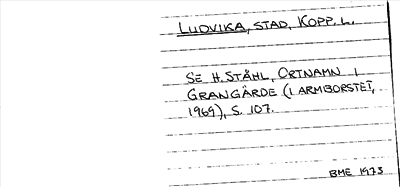 LUDVIKA, STAD, KOPP. L.
SE H. STÅHL, ORTNAMN I
GRANGÄRDE (I ARMBORSTET,
1969), S. 107.
BME 1973